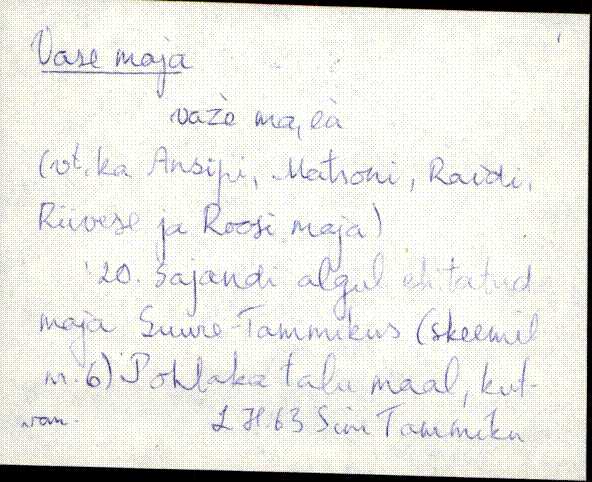 Vase maja
važè ma,eà
(vt. ka Ansipi, Matsoni, Raidi,
Riivese ja Roosi maja)
20. sajandi algul ehitatud
maja Suure-Tammikus (skeemil
nr. 6) Pohlaka talu maal, kut-
van. L H. 63 Tammiku